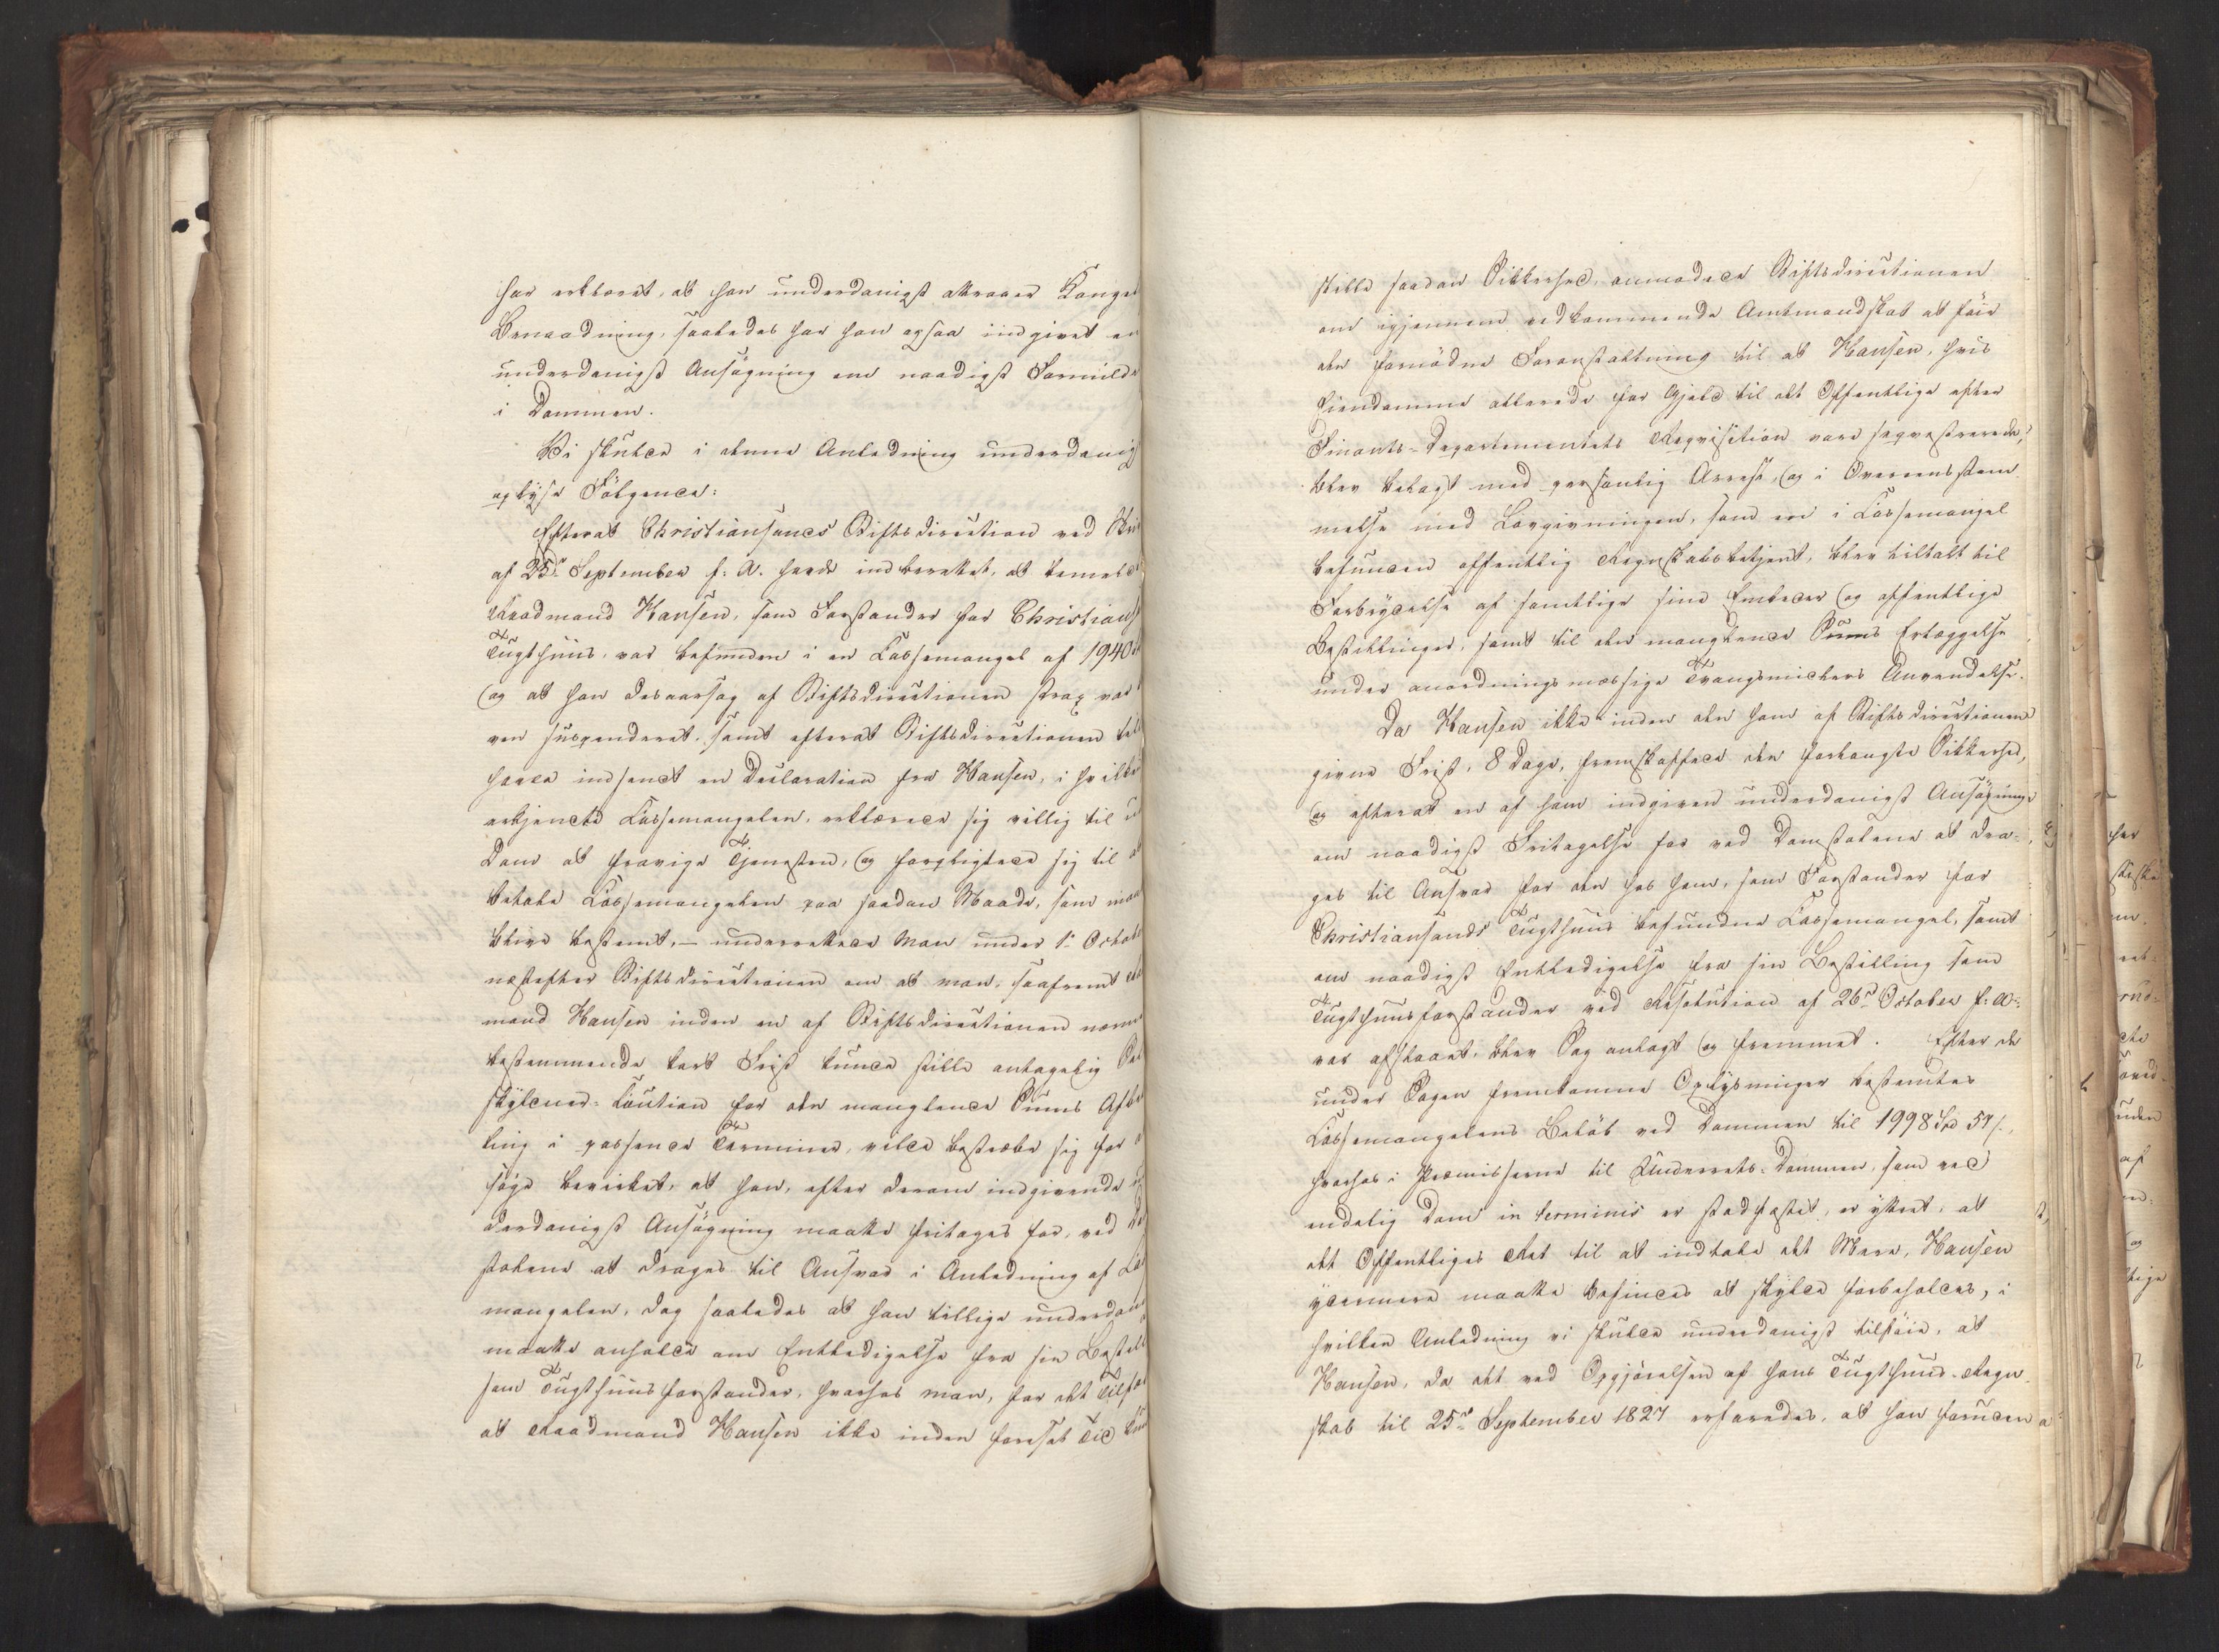 har erklæret, at han underdanigst attraaer Konge
Benaadning, saaledes har han ogsaa indgivet en
underdanigst Ansøgning om naadigst Formilde
i Dommen.
Vi skulde i denne Anledning underdanig
oplyse Følgende:
Efterat Christiansands Stiftsdirection ved Skri
af 25de September f: A. havde indberettet, at bemeldte
Raadmand Hansen, som Forstander for Christians
Tugthuus, var befunden i en Cassemangel af 1940
og at han desaarsag af Stiftsdirectionen strax var
ven suspenderet, samt efterat Stiftsdirectionen til
havde indsendt en Declaration fra Hansen, i hvilken
erkjendte Cassemangelen, erklærede sig villig til u
Dom at fravige Tjenesten, og forpligtede sig til a
betale Cassemangelen paa saadan Maade, som maa
blive bestemt, – underrettede man under 1ste Octobe
næstefter Stiftsdirectionen om at man, saafremt Raa
mand Hansen inden en af Stiftsdirectionen nærme
bestemmende kort Frist kunde stille antagelig Sel
skyldner-Caution for den manglende Sums Afbe
ling i passende Terminer, vilde bestræbe sig for
søge bevirket, at han, efter derom indgivende un
derdanigst Ansøgning maatte fritages for, ved Dom
stolene at drages til Ansvar i Anledning af Cas
mangelen, dog saaledes at han tillige underdan
maatte anholde om Entledigelse fra sin Bestill
som Tugthuusforstander, hvorhos man, for det Tilfæ
at Raadmand Hansen ikke inden foresat Tid kun
stille saadan Sikkerhed, anmodede Stiftsdirectionen
om igjennem vedkommende Amtmandskab at føie
den fornødne Foranstaltning til at Hansen, hvis
Eiendomme allerede for Gjæld til det Offentlige efter
Finants-Departementets Reqvisition vare seqvestrerede,
blev belagt med personlig Arrest, og i Overeensstem
melse med Lovgivningen, som en i Cassemangel
befunden offentlig Regnskabsbetjent, blev tiltalt til
Forbrydelse af samtlige sine Embeder og offentlige
Bestillinger, samt til den manglende Sums Erlæggelse
under anordningsmæssige Tvangsmidlers Anvendelse.
Da Hansen ikke inden den ham af Stiftsdirectionen
givne Frist, 8 Dage, fremskaffede den forlangte Sikkerhed,
og efterat en af ham indgiven underdanigst Ansøgning
om naadigst Fritagelse for ved Domstolene at dra-
ges til Ansvar for den hos ham, som Forstander for
Christiansands Tugthuus befundne Cassemangel, samt
om naadigst Entledigelse fra sin Bestilling som
Tugthuusforstander ved Resolution af 26de October f: A:
var afslaaet, blev Sag anlagt og fremmet. Efter de
under Sagen fremkomne Oplysninger bestemtes
Cassemangelens Beløb ved Dommen til 1998 Spd 57 s.,
hvorhos i Præmisserne til Underrets-Dommen, som ved
endelig Dom in terminis er stadfæstet, er yttret, at
det Offentliges Ret til at indtale det Mere, Hansen
ydermere maatte befindes at skylde forbeholdes, i
hvilken Anledning vi skulde underdanigst tilføie, at
Hansen, da det ved Opgjørelsen af hans Tugthuus-Regn
skab til 25de September 1827 erfaredes, at han foruden